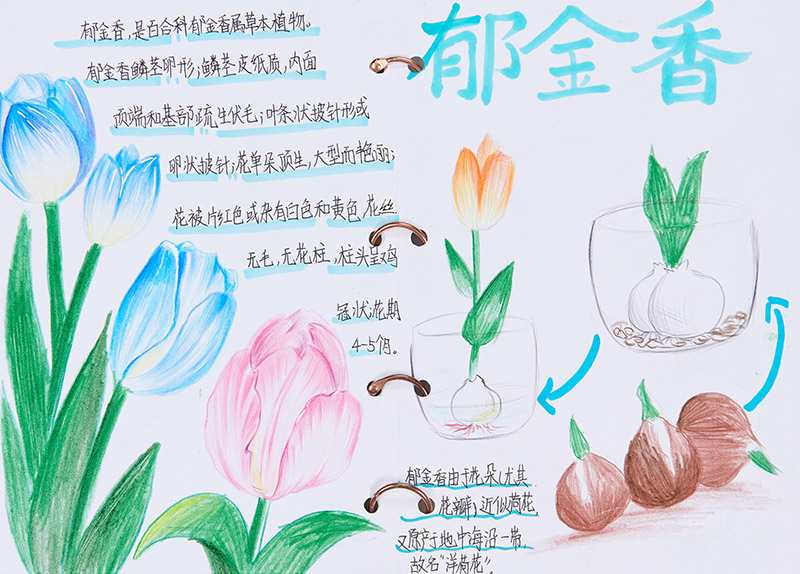 郁金香,是百合科郁金香属草本植物。
郁金香鳞茎卵形;鳞茎皮纸质,内面
顶端和基部疏生伏毛;叶条状披针形或
卵状披针;花单朵顶生,大型而艳丽;
花被片红色或杂有白色和黄色,花丝
无毛,无花柱,柱头呈鸡
冠状;花期
4-5个月。
郁金香
郁金香由于花朵(尤其
花瓣)近似荷花,
又原产于地中海沿一带,
故名“洋荷花”。